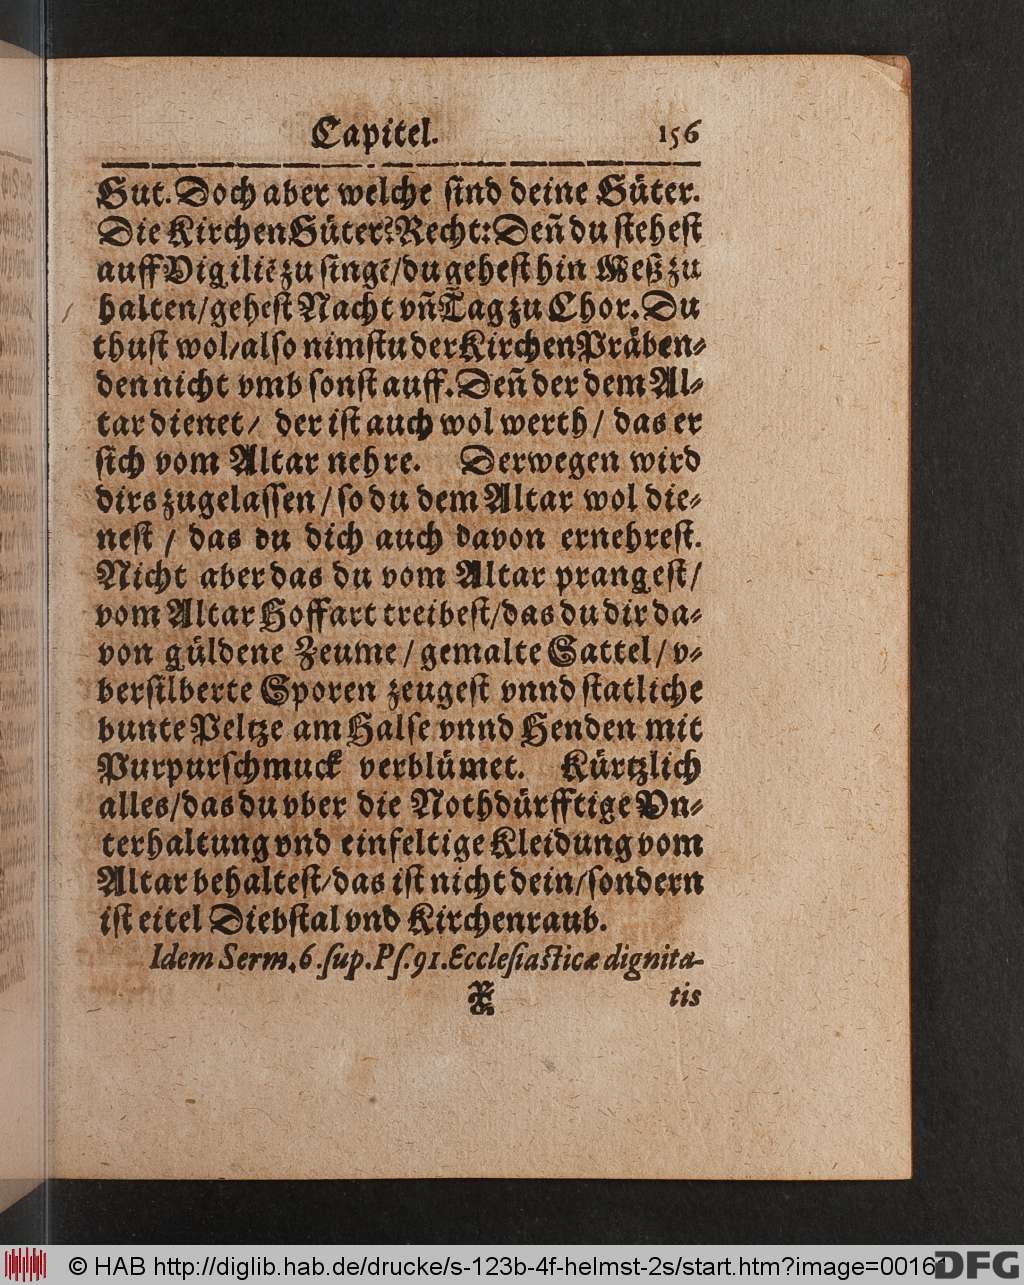 Capitel. 156
Gut. Doch aber welche sind deine Güter.
Die KirchenGüter? Recht: Deñ du stehest
auff Vigiliē zu singē/ du gehest hin Meß zu
halten/ gehest Nacht vñ Tag zu Chor. Du
thust wol/ also nimstu der Kirchen Präben-
den nicht vmb sonst auff. Deñ der dem Al-
tar dienet/ der ist auch wol werth/ das er
sich vom Altar nehre. Derwegen wird
dirs zugelassen/ so du dem Altar wol die-
nest/ das du dich auch davon ernehrest.
Nicht aber das du vom Altar prangest/
vom Altar Hoffart treibest/ das du dir da-
von güldene Zeume/ gemalte Sattel/ v-
bersilberte Sporen zeugest vnnd statliche
bunte Peltze am Halse vnnd Henden mit
Purpurschmuck verblümet. Kürtzlich
alles/ das du vber die Nothdürfftige Vn-
terhaltung vnd einfeltige Kleidung vom
Altar behaltest/ das ist nicht dein/ sondern
ist eitel Diebstal vnd Kirchenraub.
Idem Serm. 6. sup. Ps. 91. Ecclesiasticæ dignita-
tis
© HAB http://diglib.hab.de/drucke/s-123b-4f-helmst-2s/start.htm?image=00161
DFG